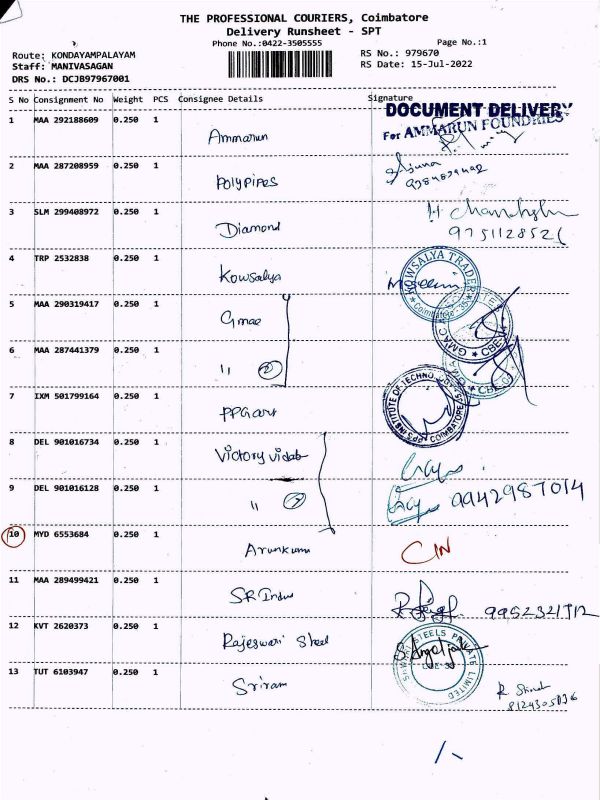 THE PROFESSIONAL COURIERS, Coimbatore
Delivery Runsheet - SPT
Phone No.:0422-3505555
Page No.:1
Route: KONDAYAMPALAYAM
RS No.: 979670
Staff: MANIVASAGAN
RS Date: 15-Jul-2022
DRS No.: DCJB97967001
S No Consignment No Weight PCS Consignee Details Signature
DOCUMENT DELIVERY
For AMMARUN FOUNDRIES
1 MAA 292188609 0.250 1 Ammarun
2 MAA 287208959 0.250 1 Polypipes
3 SLM 299408972 0.250 1 Diamond
9751128521
4 TRP 2532838 0.250 1 Kowsalya
KOWSALYA TRADER
Coimbatore - 35
5 MAA 290319417 0.250 1 Gmac
GMAC
CBE
6 MAA 287441379 0.250 1 " 2
7 IXM 501799164 0.250 1
PPG INSTITUTE OF TECHNOLOGY
COIMBATORE
8 DEL 901016734 0.250 1 Victory
9 DEL 901016128 0.250 1 " 2 9942987014
10 MYD 6553684 0.250 1 Arunkumar CIN
11 MAA 289499421 0.250 1 SR Indus
12 KVT 2620373 0.250 1 Rajeswari Steel
STEELS PRIVATE LIMITED
13 TUT 6103947 0.250 1 Sriram